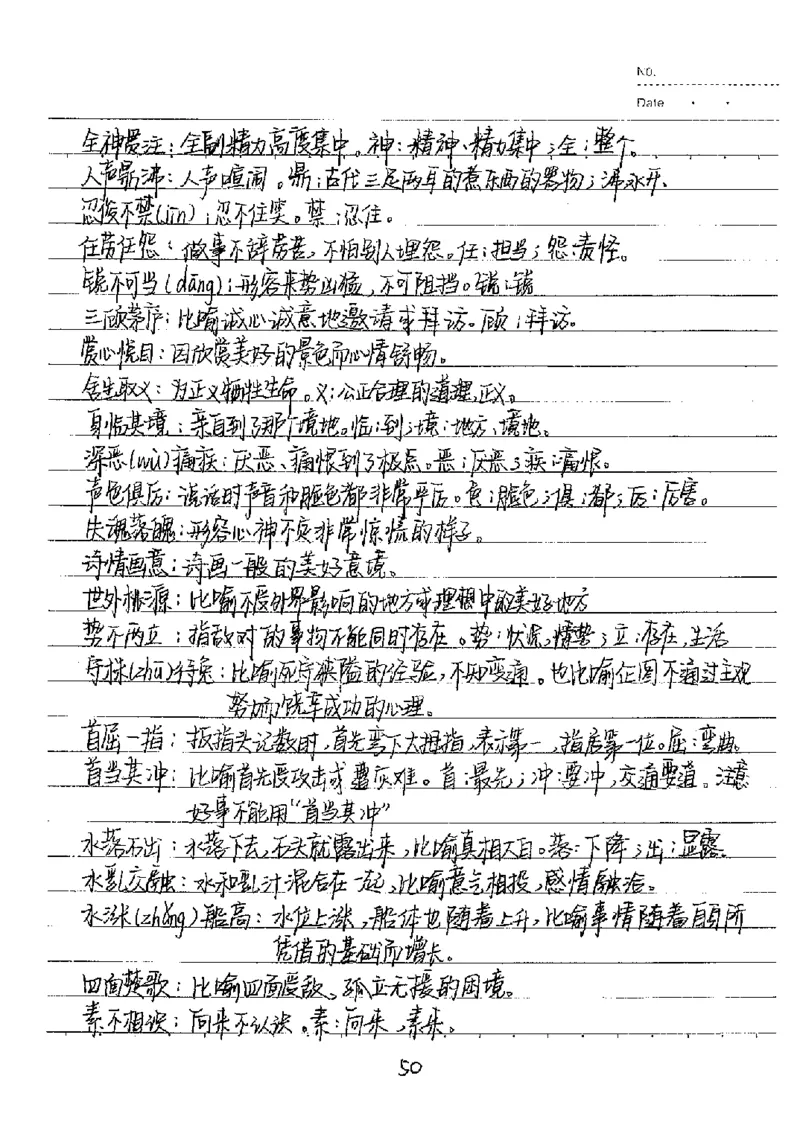 No.
Date
全神贯注：全副精力高度集中。神：精神、精力集中；全：整个。
人声鼎沸：人声喧闹。鼎：古代三足两耳的煮东西的器物；沸：水开。
忍俊不禁(jīn)：忍不住笑。禁：忍住。
任劳任怨：做事不辞劳苦，不怕别人埋怨。任：担当；怨：责怪。
锐不可当(dāng)：形容来势凶猛，不可阻挡。锐：锐
三顾茅庐：比喻诚心诚意地邀请或拜访。顾：拜访。
赏心悦目：因欣赏美好的景色而心情舒畅。
舍生取义：为正义牺牲生命。义：公正合理的道理，正义。
身临其境：亲自到了那个境地。临：到；境：地方，境地。
深恶(wù)痛疾：厌恶、痛恨到了极点。恶：厌恶；疾：痛恨。
声色俱厉：说话时声音和脸色都非常严厉。色：脸色；俱：都；厉：厉害。
失魂落魄：形容心神不定非常惊慌的样子。
诗情画意：诗画一般的美好意境。
世外桃源：比喻不受外界影响的地方或理想中的美好地方
势不两立：指敌对的事物不能同时存在。势：状况，情势；立：存在，生活
守株(zhū)待兔：比喻死守狭隘的经验，不知变通。也比喻企图不通过主观
努力而侥幸成功的心理。
首屈一指：扳指头记数时，首先弯下大拇指，表示第一，指居第一位。屈：弯曲。
首当其冲：比喻首先受攻击或遭灾难。首：最先；冲：要冲，交通要道。注意
好事不能用“首当其冲”
水落石出：水落下去，石头就露出来，比喻真相大白。落：下降；出：显露。
水乳交融：水和乳汁混合在一起，比喻意气相投，感情融洽。
水涨(zhǎng)船高：水位上涨，船体也随着上升，比喻事情随着自身所
凭借的基础而增长。
四面楚歌：比喻四面受敌、孤立无援的困境。
素不相识：向来不认识。素：向来，素来。
50